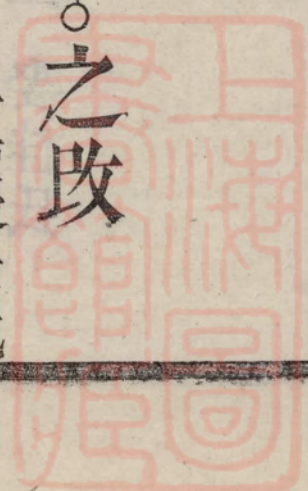 。之改
上海圖
書館藏